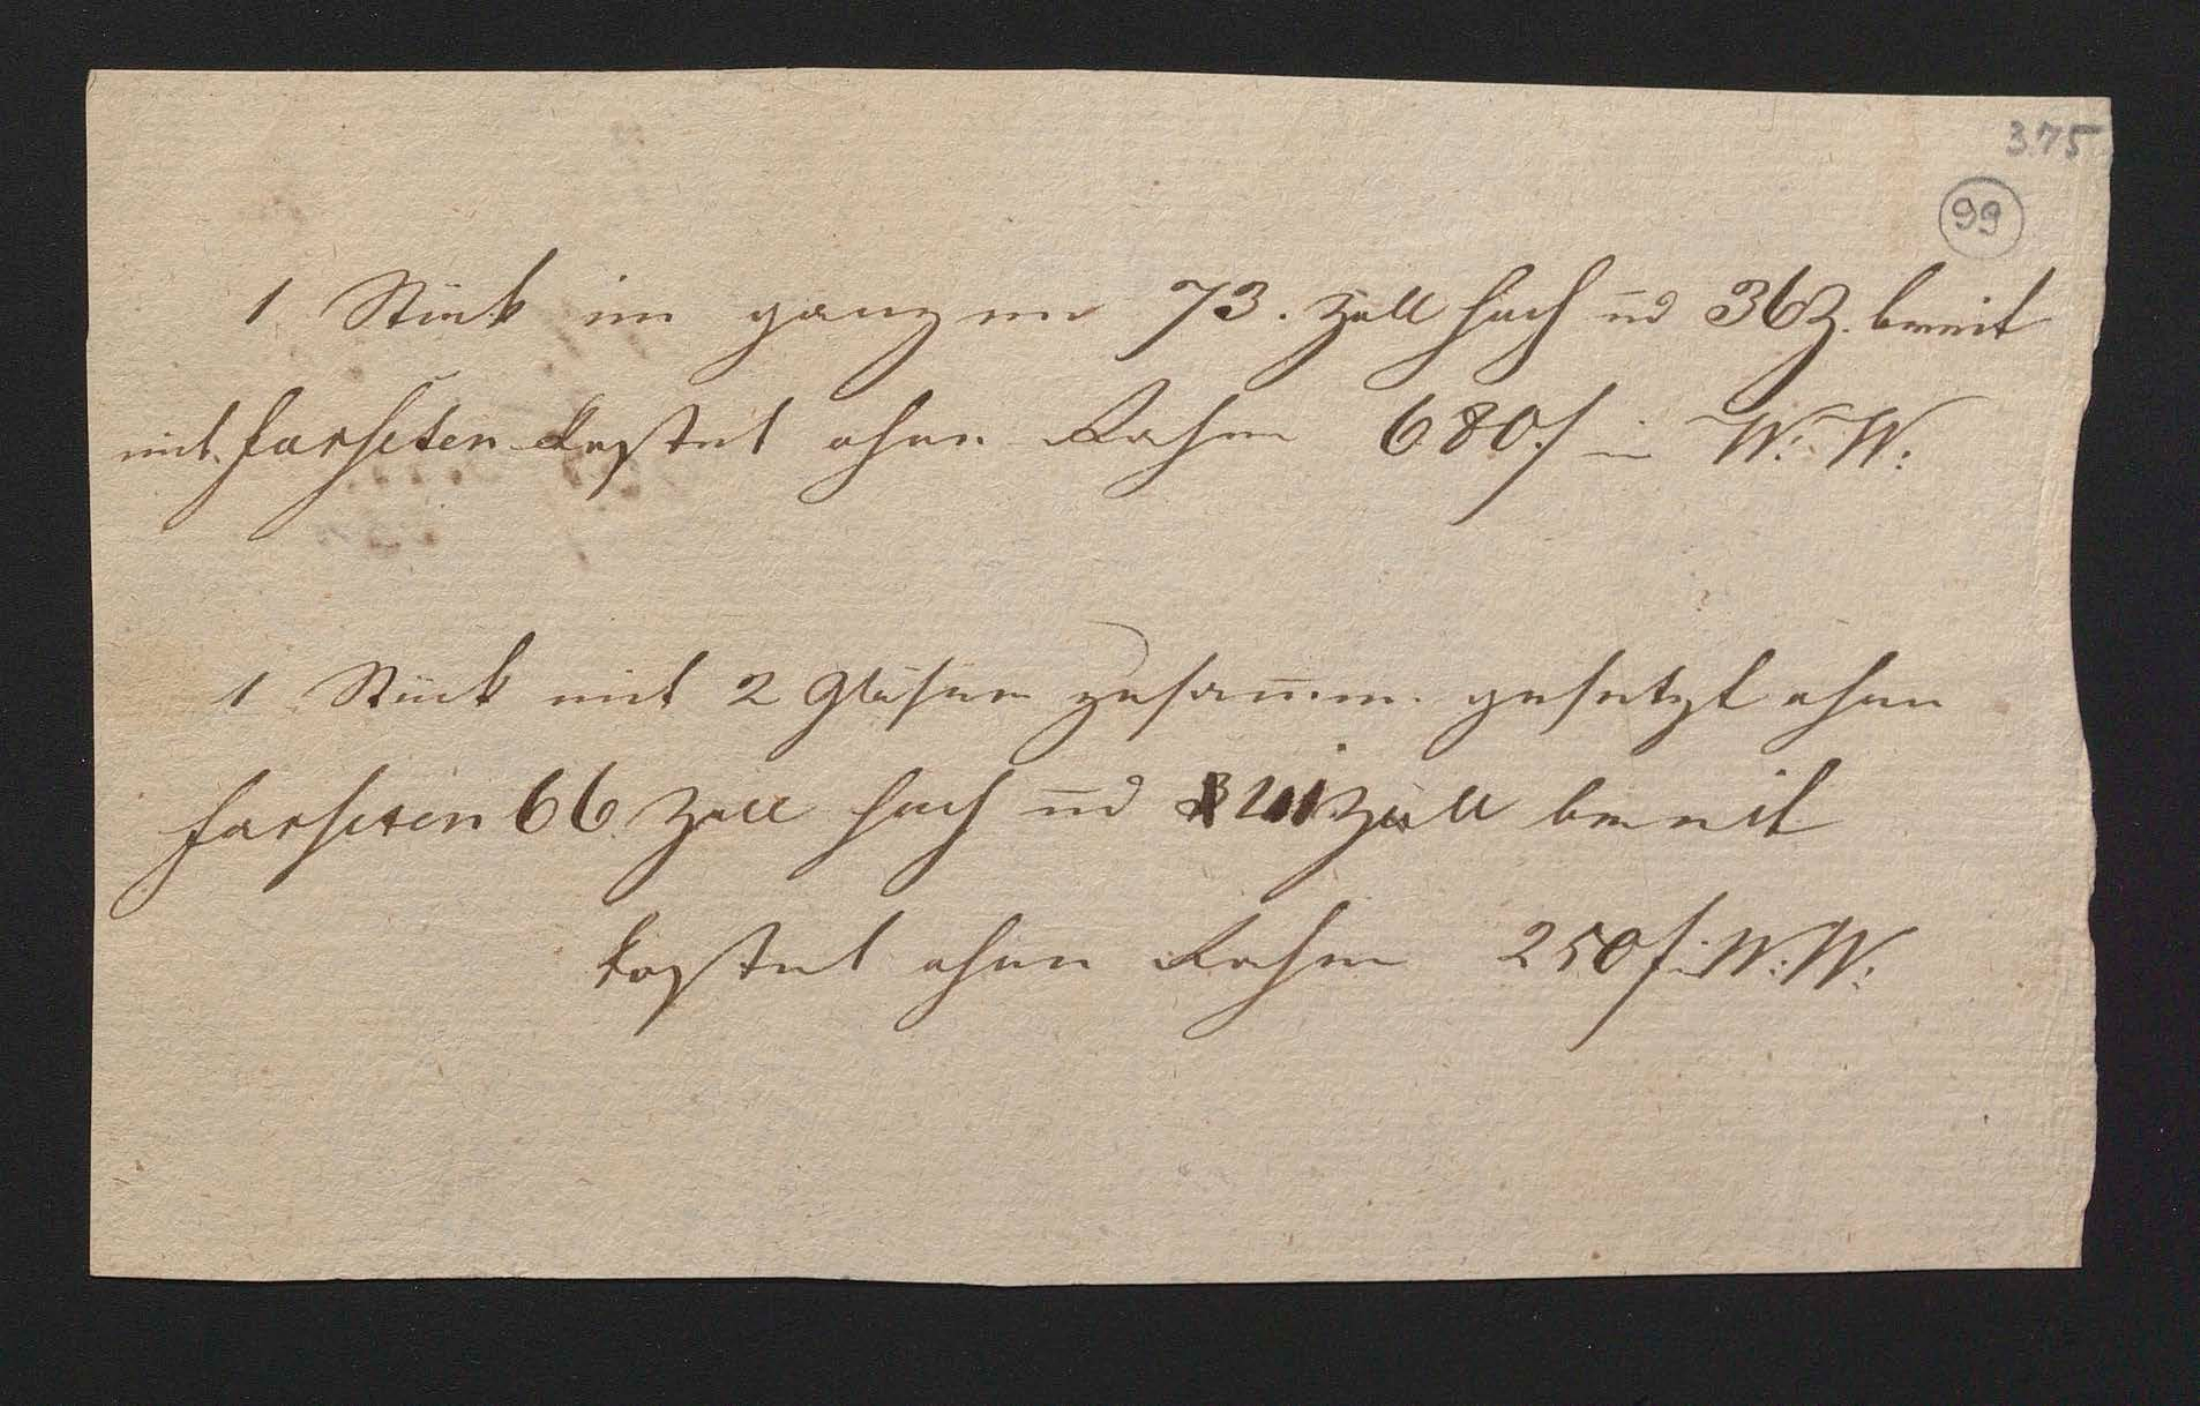 375
99
1 Stück im ganzen 73. Zoll hoch ud 36 Z. breit
mit farseten kostet ohne Rahm 680 f in W: W:
1 Stück mit 2 Gläsern zusamm. gesetzt ohne
farseten 66 Zoll hoch ud Zoll breit
kostet ohne Rahm 250 f in W: W: